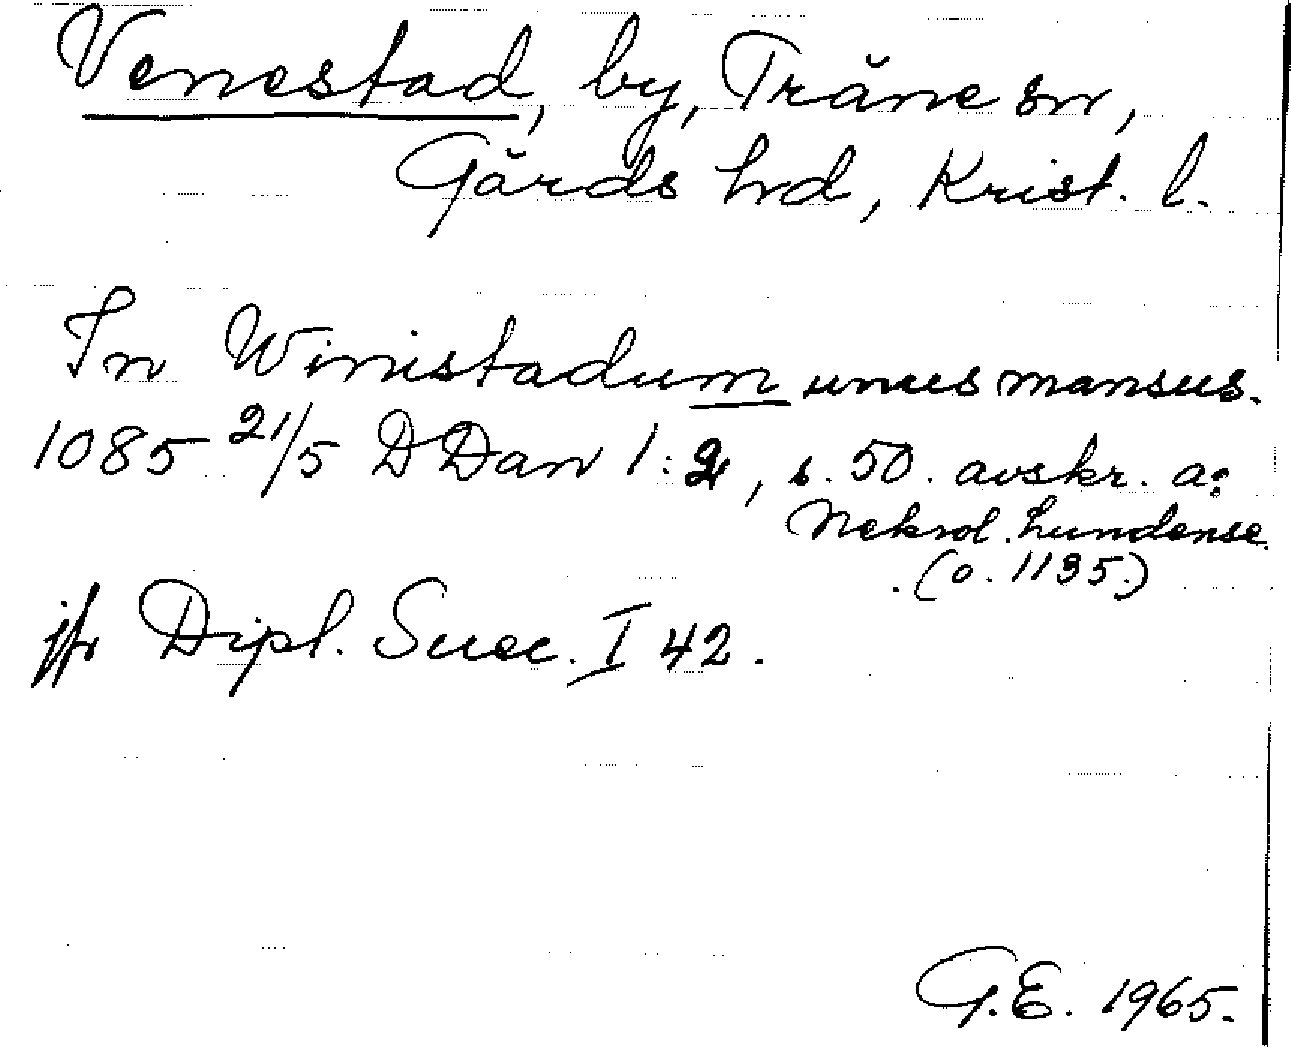 Venestad, by, Träne sn,
Gärds hrd, Krist. l.
In Winistadum unus mansus.
1085 21/5 DDan 1:2, s. 50. avskr. a:
Nekrol. Lundense
(o. 1135)
jfr Dipl. Suec. I 42.
G.E. 1965.